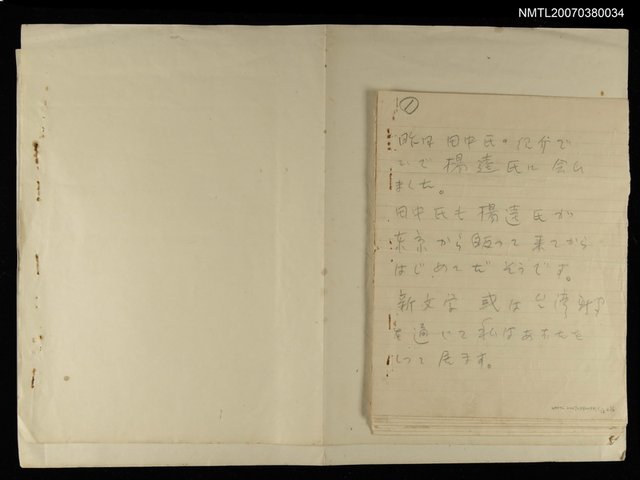 NMTL20070380034
①
昨日 田中氏。
いで 楊逵氏に 会ひ
ました。
田中氏も 楊逵氏が
东京から 皈つて 来てから
はじめてだ そうです。
新文学 或は 台湾新
を通じて 私はあなたを
しつて 居ます。